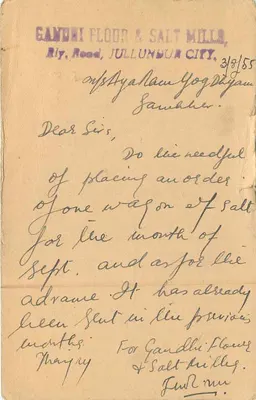 GANDHI FLOUR & SALT MILLS,
Rly. Road, JULLUNDUR CITY.
3/8/55
M/s Aya Ram Yog Dhyan
Sambher.
Dear Sirs,
Do the needful
of placing an order
of one wagon of salt
for the month of
Sept. and as for the
advance. It has already
been sent in the previous
months.
For Gandhi Flower
& Salt Mills